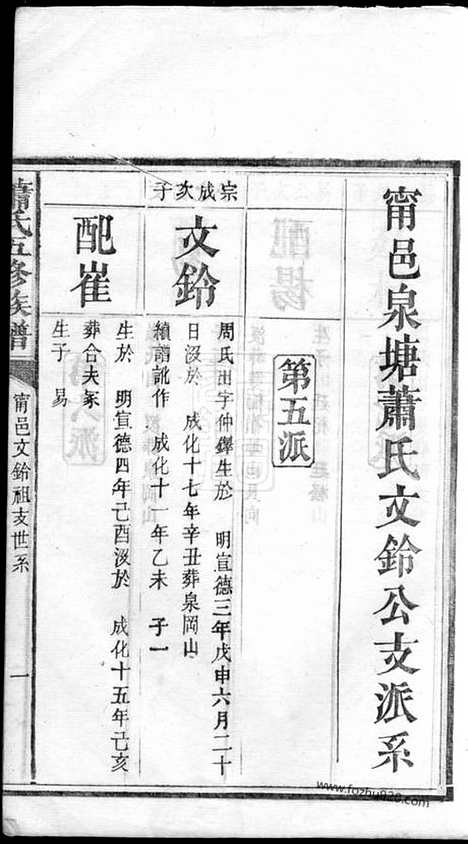 甯邑泉塘蕭氏文鈴公支派系
第五派
宗成次子
文鈴
周氏出字仲鐸生於　明宣德三年戊申六月二十
日沒於　成化十七年辛丑葬泉岡山
績譜訛作　成化十一年乙未　子一
配崔
生於　明宣德四年己酉沒於　成化十五年己亥
葬合夫冢
生子　易
蕭氏五修族譜
甯邑文鈴祖支世系
一
www.fozhu920.com